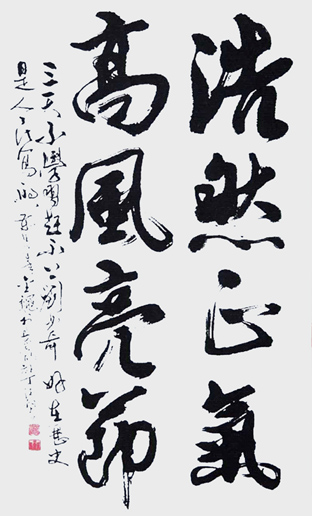 浩然正氣
高風亮節
三天不學習趕不上劉少奇 好在歷史
是人民寫的